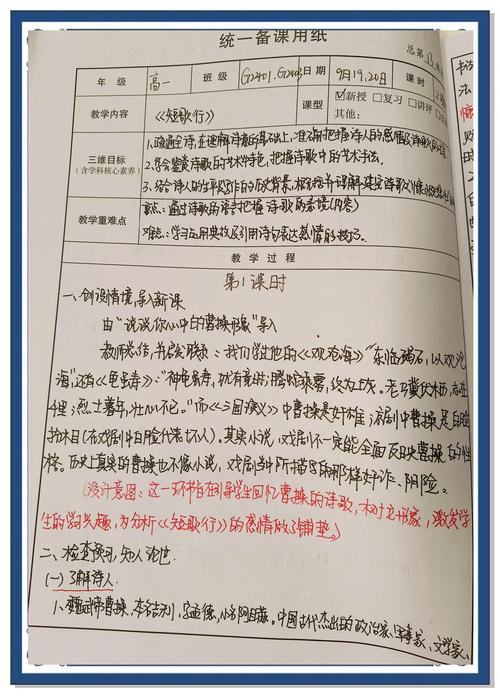 统一备课用纸
总第13
年级 高一 班级 G2401、G2402 日期 9月19、20日 课时
教学内容 《短歌行》 课型 ☑新授 □复习 □讲评
其他：
三维目标
（含学科核心素养）
1.疏通全诗，在理解诗意的基础上，准确把握诗人的感情
2.鉴赏诗歌的艺术特色，把握诗歌中的艺术手法。
3.结合诗人的生平及写作的历史背景
教学重难点
重点：通过诗歌的语言把握诗歌的意境（内容）
难点：学习运用典故及引用诗句表达感情的技巧。
教学过程
第1课时
一、创设情境，导入新课
由“说说你心中的曹操形象”导入
教师总结，并启发联系：我们学过他的《观沧海》“东临碣石，以观沧
海”，还有《龟虽寿》：“神龟虽寿，犹有竟时；腾蛇乘雾，终为土灰。老骥伏枥，志在
千里；烈士暮年，壮心不已。”而《三国演义》中曹操是奸雄，京剧中曹操是白脸
扮相（在戏剧中白脸代表坏人）。其实小说，戏剧不一定能全面反映曹操的性
格。历史上真实的曹操也不像小说，戏剧当中所描写的那样奸诈、阴险。
（设计意图：这一环节旨在引导学生回忆曹操的诗歌，树立形象，激发学
生的学习兴趣，为分析《短歌行》的感情做了铺垫。）
二、检查预习，知人论世
（一）了解诗人
1、曹操，本名吉利，字孟德，小名阿瞒。中国古代杰出的政治家、军事家、文学家、